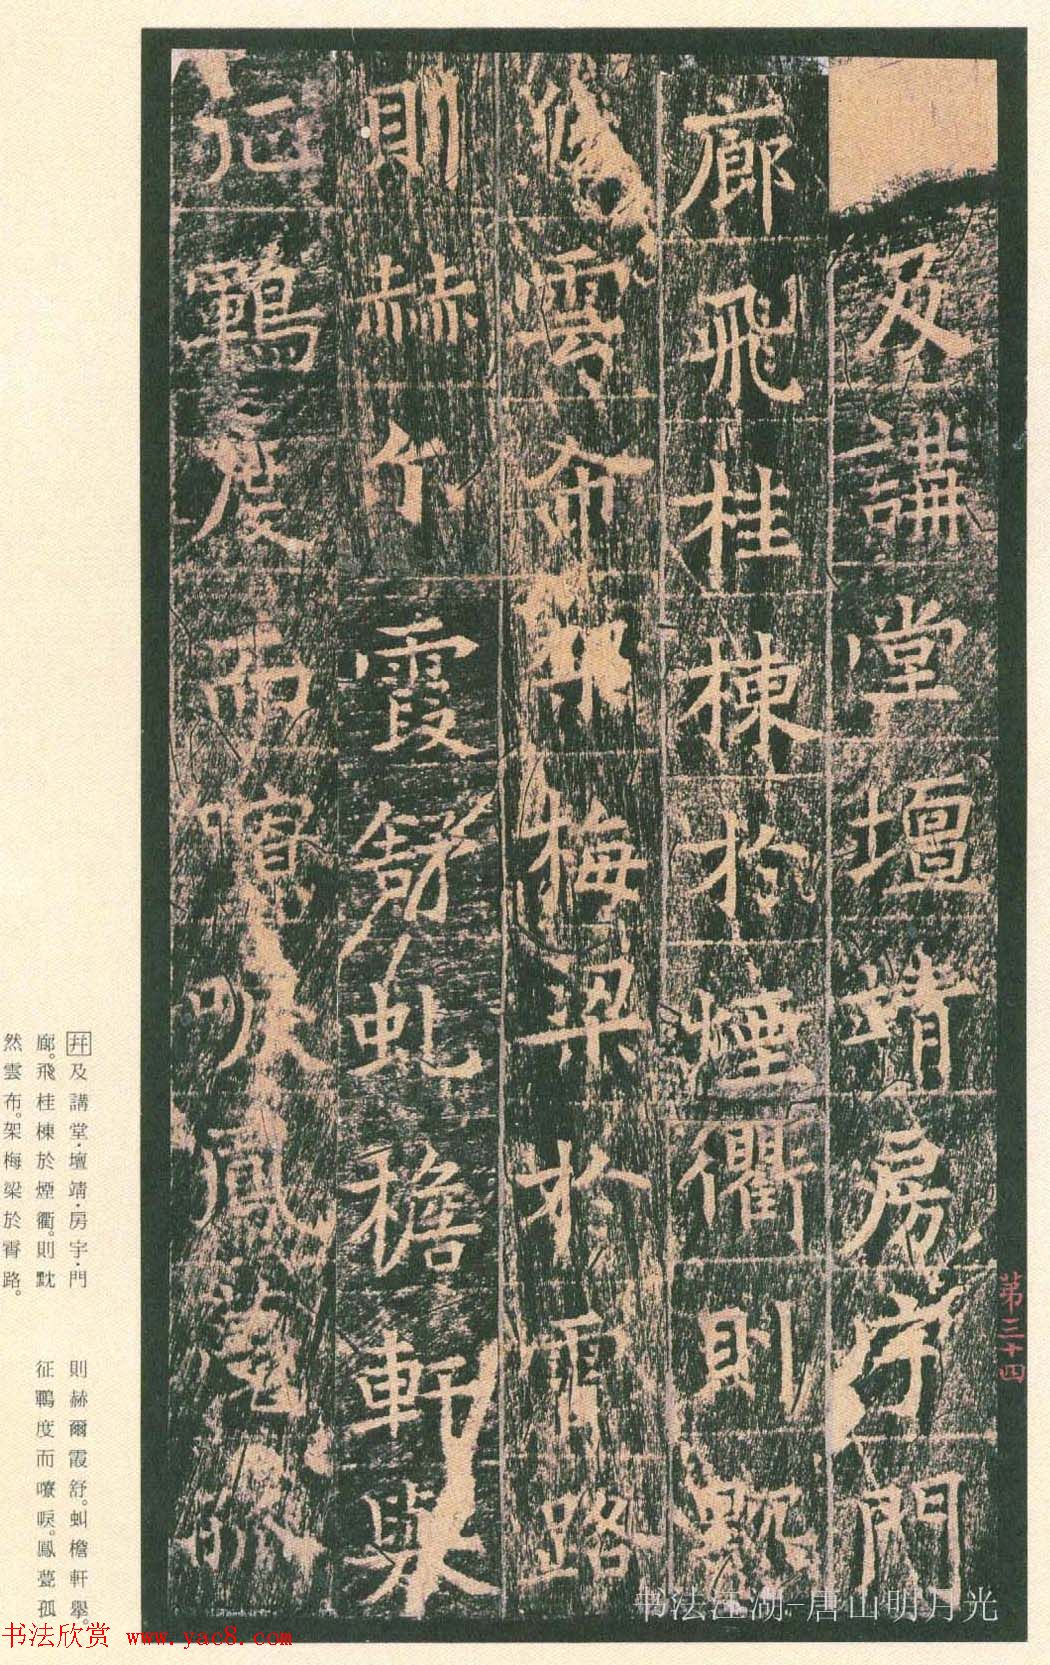 及講堂壇靖房宇門
廊飛桂棟於煙衢則黕
然雲布架梅梁於霄路
則赫尒霞舒虬檐軒舉
征度而嘹唳鳳甍孤
第三十四
幷及講堂·壇靖·房宇·門
廊。飛桂棟於煙衢。則黕
然雲布。架梅梁於霄路。
則赫爾霞舒。虬檐軒舉。
征度而嘹唳。鳳甍孤
书法江湖-唐山明月光
书法欣赏 www.yac8.com